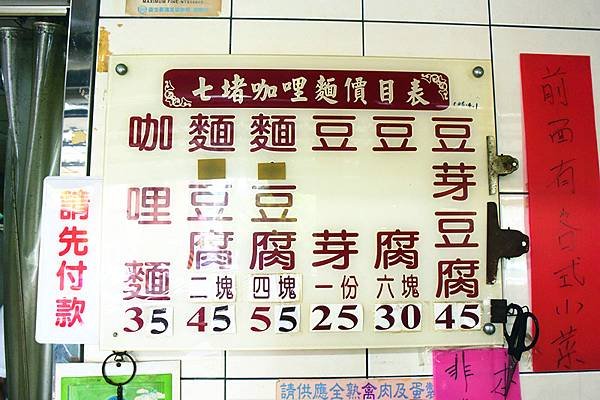 七堵咖哩麵價目表
咖哩麵 35
麵豆腐二塊 45
麵豆腐四塊 55
豆芽一份 25
豆腐六塊 30
豆芽豆腐 45
請先付款
前面有各式小菜
請供應全熟禽肉及蛋製
非
MAXIMUM FINE:NT$